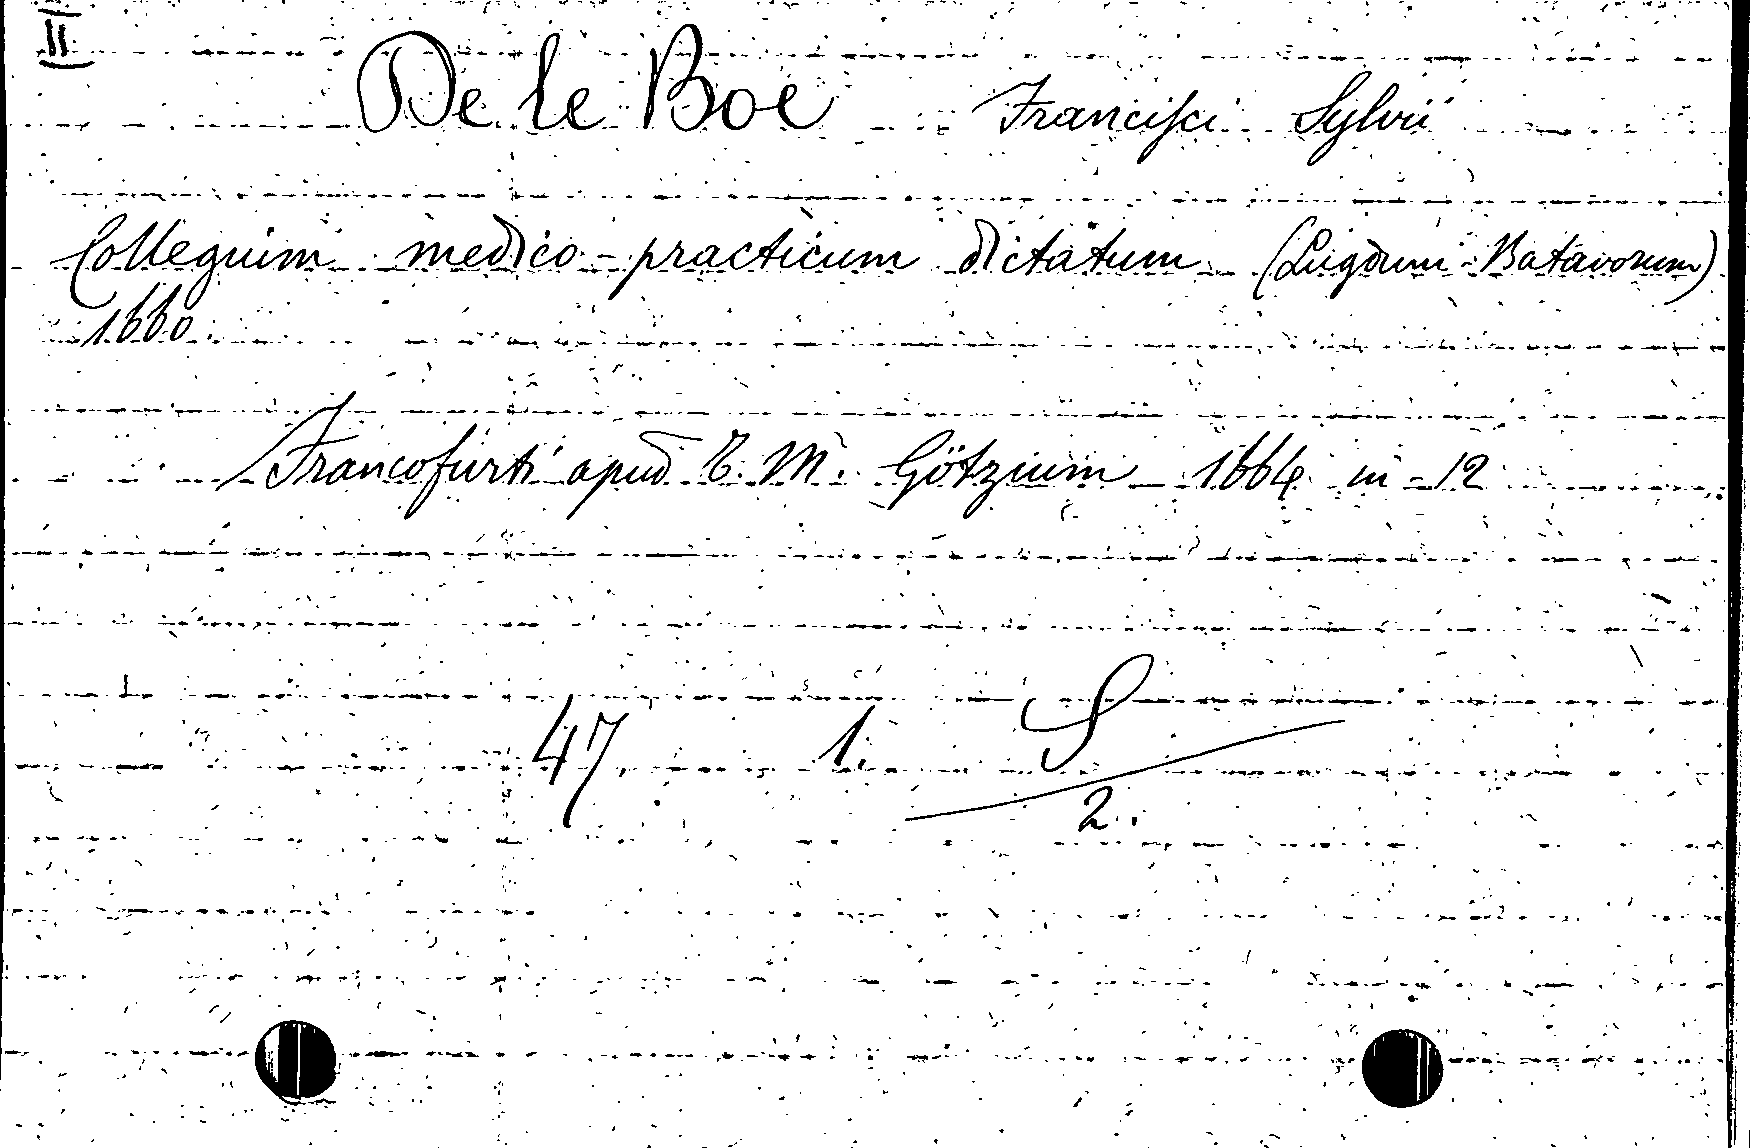 II
De le Boe Francisci Sylvii
Collegium medico-practicum dictatum (Lugduni-Batavorum)
1660
Francofurti apud T. M. Götzium 1664 in-12
47 1. S
2.